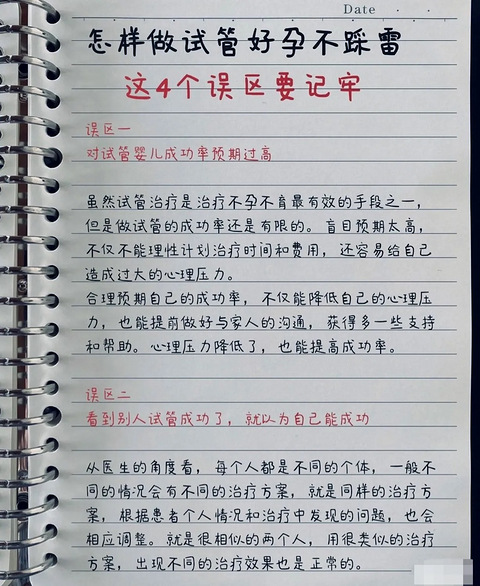 Date
怎样做试管好孕不踩雷
这4个误区要记牢
误区一
对试管婴儿成功率预期过高
虽然试管治疗是治疗不孕不育最有效的手段之一，
但是做试管的成功率还是有限的。盲目预期太高，
不仅不能理性计划治疗时间和费用，还容易给自己
造成过大的心理压力。
合理预期自己的成功率，不仅能降低自己的心理压
力，也能提前做好与家人的沟通，获得多一些支持
和帮助。心理压力降低了，也能提高成功率。
误区二
看到别人试管成功了，就以为自己能成功
从医生的角度看，每个人都是不同的个体，一般不
同的情况会有不同的治疗方案，就是同样的治疗方
案，根据患者个人情况和治疗中发现的问题，也会
相应调整。就是很相似的两个人，用很类似的治疗
方案，出现不同的治疗效果也是正常的。